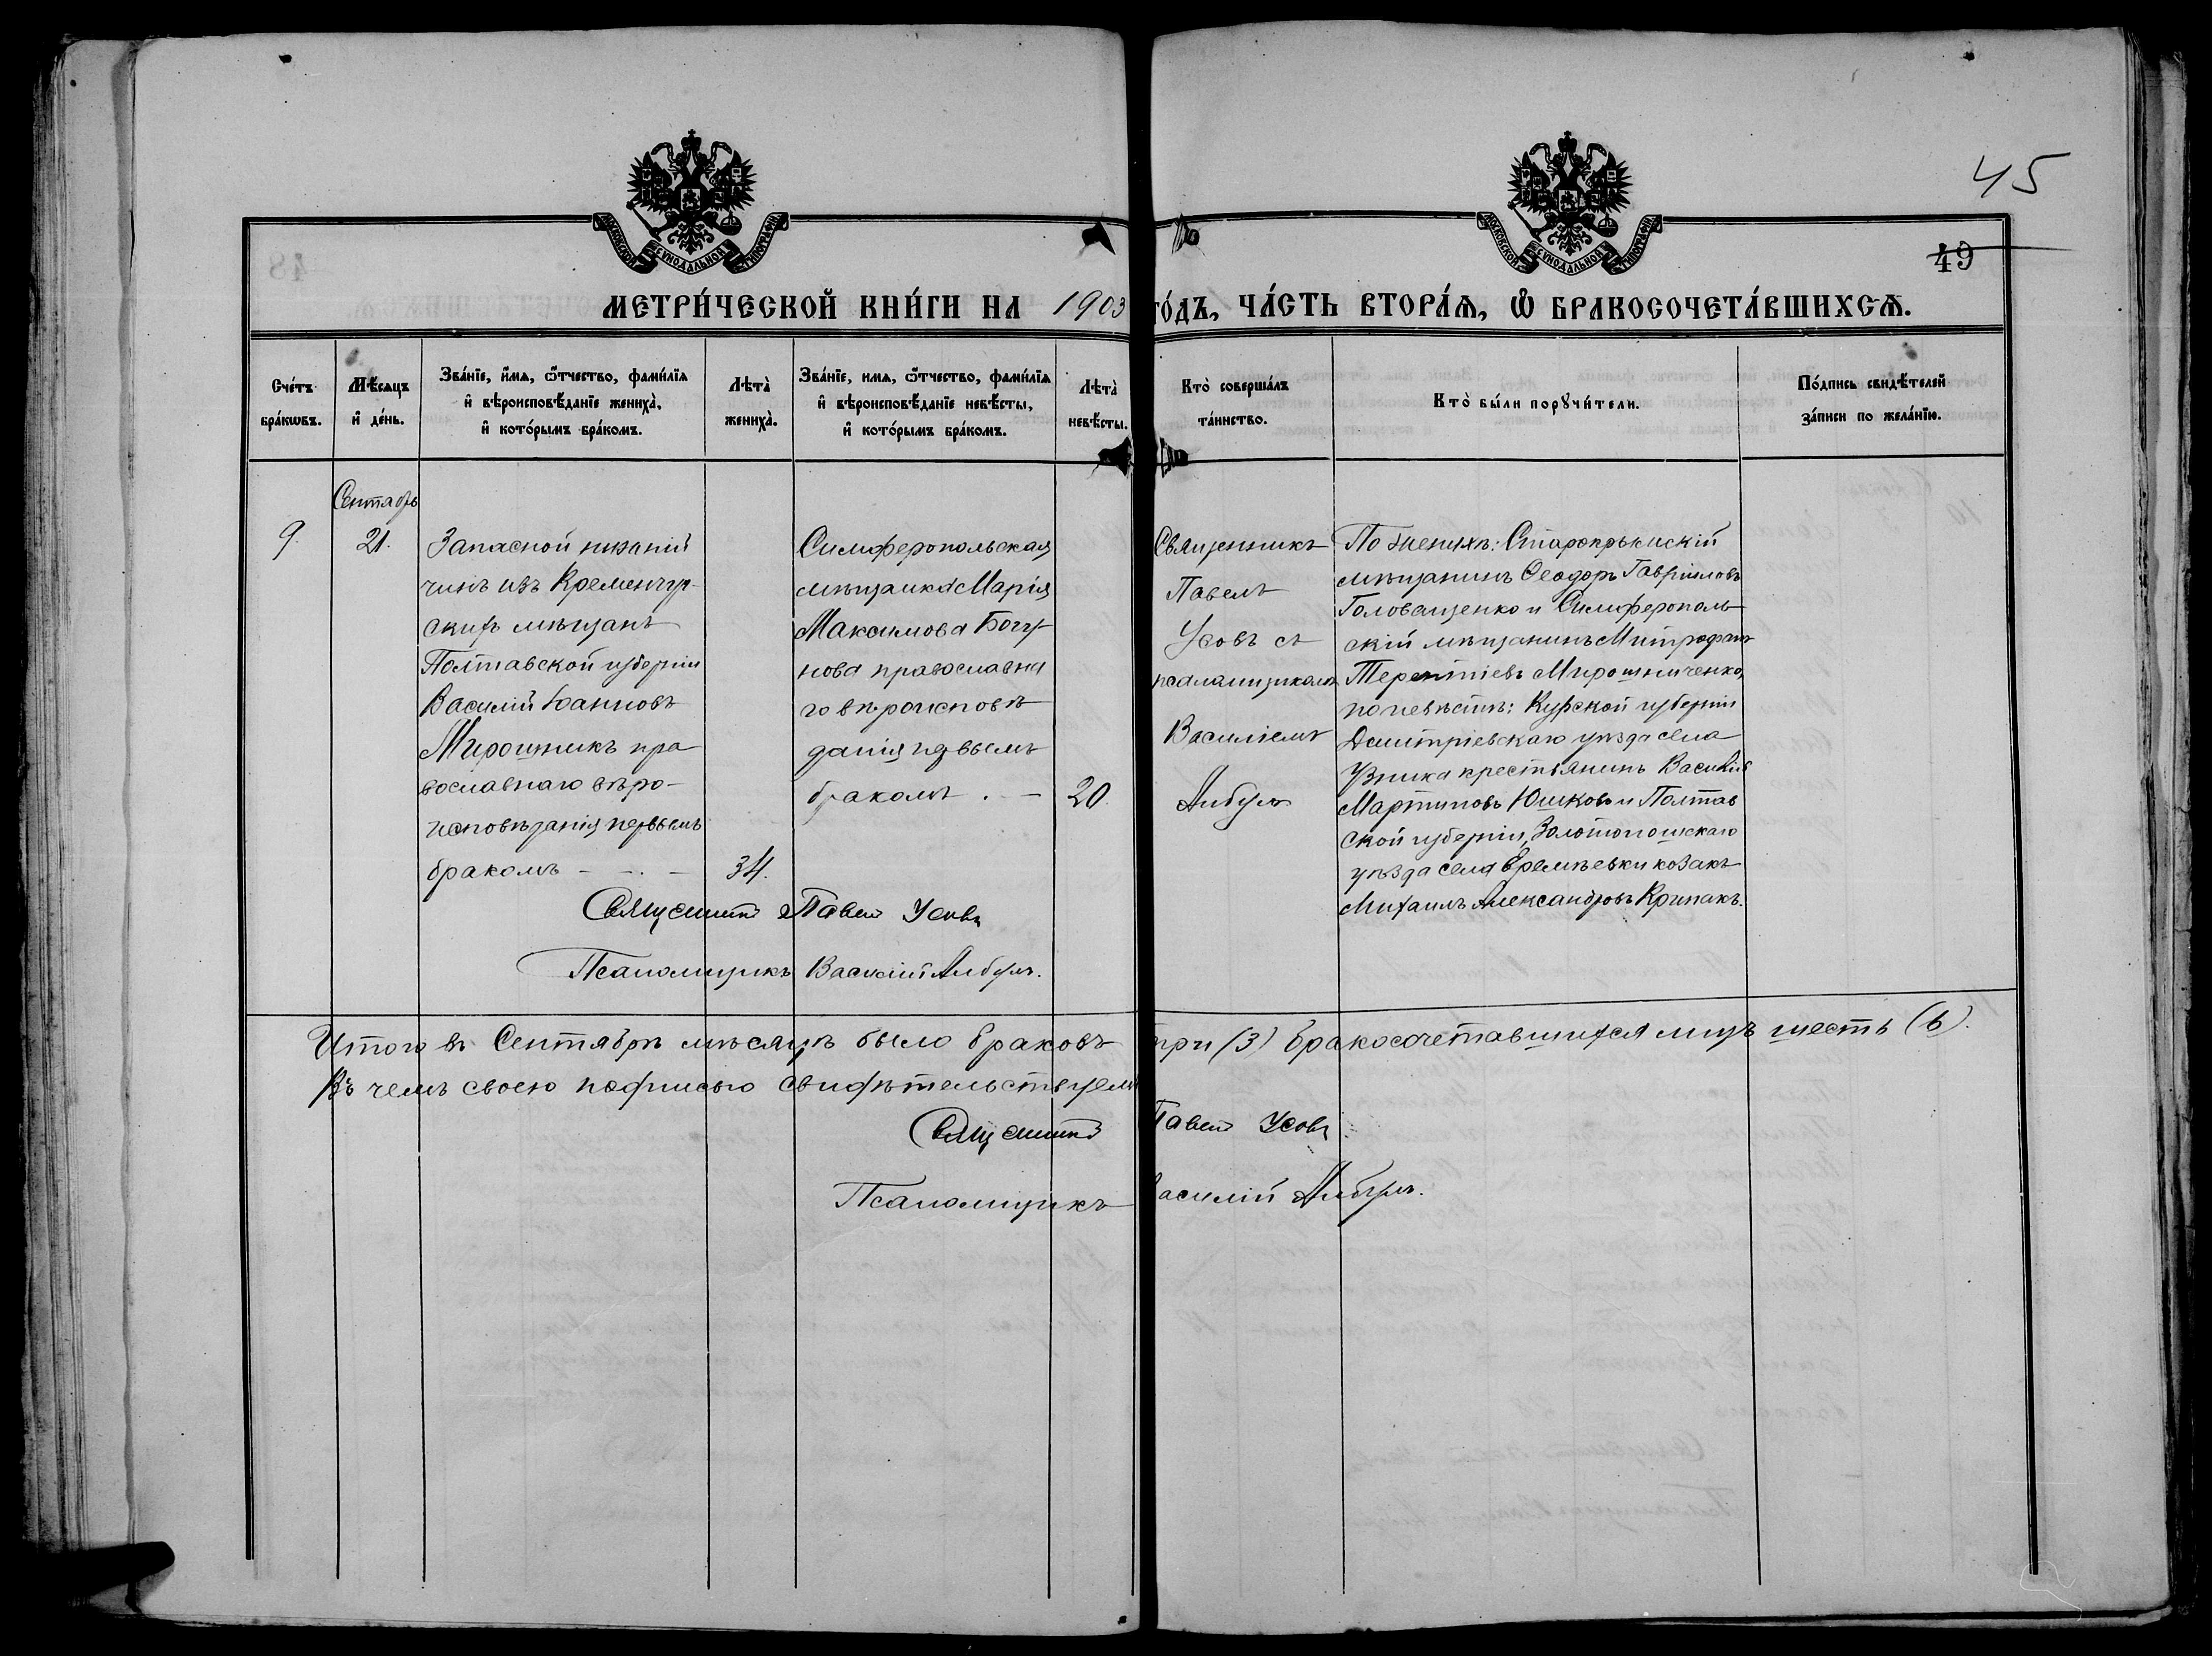 45
49
МОСКОВСКОЙ СѴНОДАЛЬНОЙ ТИПОГРАФІИ
МОСКОВСКОЙ СѴНОДАЛЬНОЙ ТИПОГРАФІИ
МЕТРИ́ЧЕСКОЙ КНИ́ГИ НА 1903 ГО́ДЪ, ЧА́СТЬ ВТОРА́Я, Ѡ҆ БРАКОСОЧЕТА́ВШИХСЯ.
Сче́тъ
бра́кѡвъ.
Мѣ́сяцъ
и҆ де́нь.
Зва́нїе, и҆́мя, ѻ҆́тчество, фами́лїя
и҆ вѣроисповѣ́данїе жениха̀,
и҆ кото́рымъ бра́комъ.
Лѣта̀
жениха̀.
Зва́нїе, имя, ѻ҆́тчество, фами́лїя
и҆ вѣроисповѣ́данїе невѣ́сты,
и҆ кото́рымъ бра́комъ.
Лѣта̀
невѣ́сты.
Кто̀ соверша́лъ
та́инство.
Кто̀ бы́ли порꙋчи́тели.
По́дпись свидѣ́телей
за́писи по жела́нїю.
Сентябрь
9.
21.
Запасной нижній
чинъ изъ Кременчуг-
скихъ мѣщанъ
Полтавской губерніи
Василій Іоанновъ
Мирошникъ пра
вославнаго вѣро-
исповѣданія первымъ
бракомъ - - . -
34.
Симферопольская
мѣщанка Марія
Максимова Богу-
нова православна
го вѣроисповѣ
данія первымъ
бракомъ . -
20.
Священникъ
Павелъ
Усовъ съ
псаломщикомъ
Василіемъ
По женихѣ: Старокрымскій
мѣщанинъ Ѳеодоръ Гавріиловъ
Голованенко и Симферополь-
скій мѣщанинъ Митрофанъ
Терентіевъ Мирошниченко,
по невѣстѣ: Курской губерніи
Дмитріевскаго уѣзда села
крестьянинъ Василій
Мартиновъ Юшковъ и Полтав
ской губерніи, Золотоношскаго
уѣзда села Еремѣевки козакъ
Михаилъ Александровъ Крипакъ.
Священникъ Павелъ Усовъ
Псаломщикъ Василій
Итого въ Сентябрѣ мѣсяцѣ было браковъ три (3) бракосочетавшихся лицъ шесть (6).
Въ чемъ своею подписью свидѣтельствуемъ
Священникъ Павелъ Усовъ
Псаломщикъ Василій